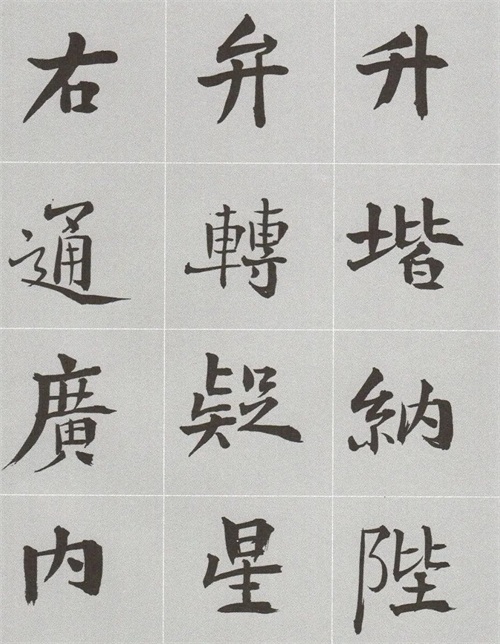 升堦納陛
弁轉疑星
右通廣内